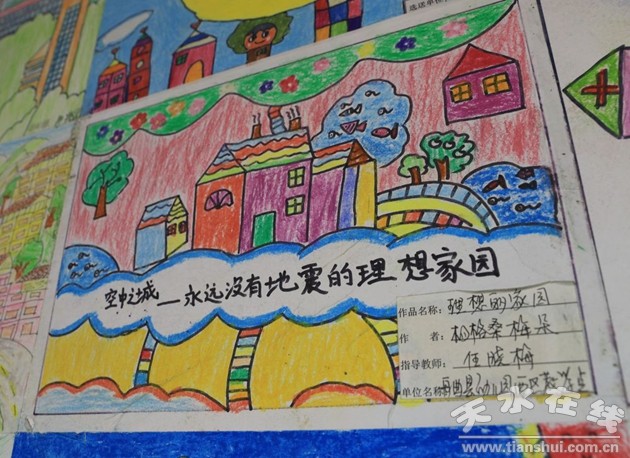 选送单位
空中之城—永远没有地震的理想家园
作品名称：理想的家园
作 者：
指导教师：任晓梅
单位名称：舟曲县幼儿园
天水在线
www.tianshui.com.cn